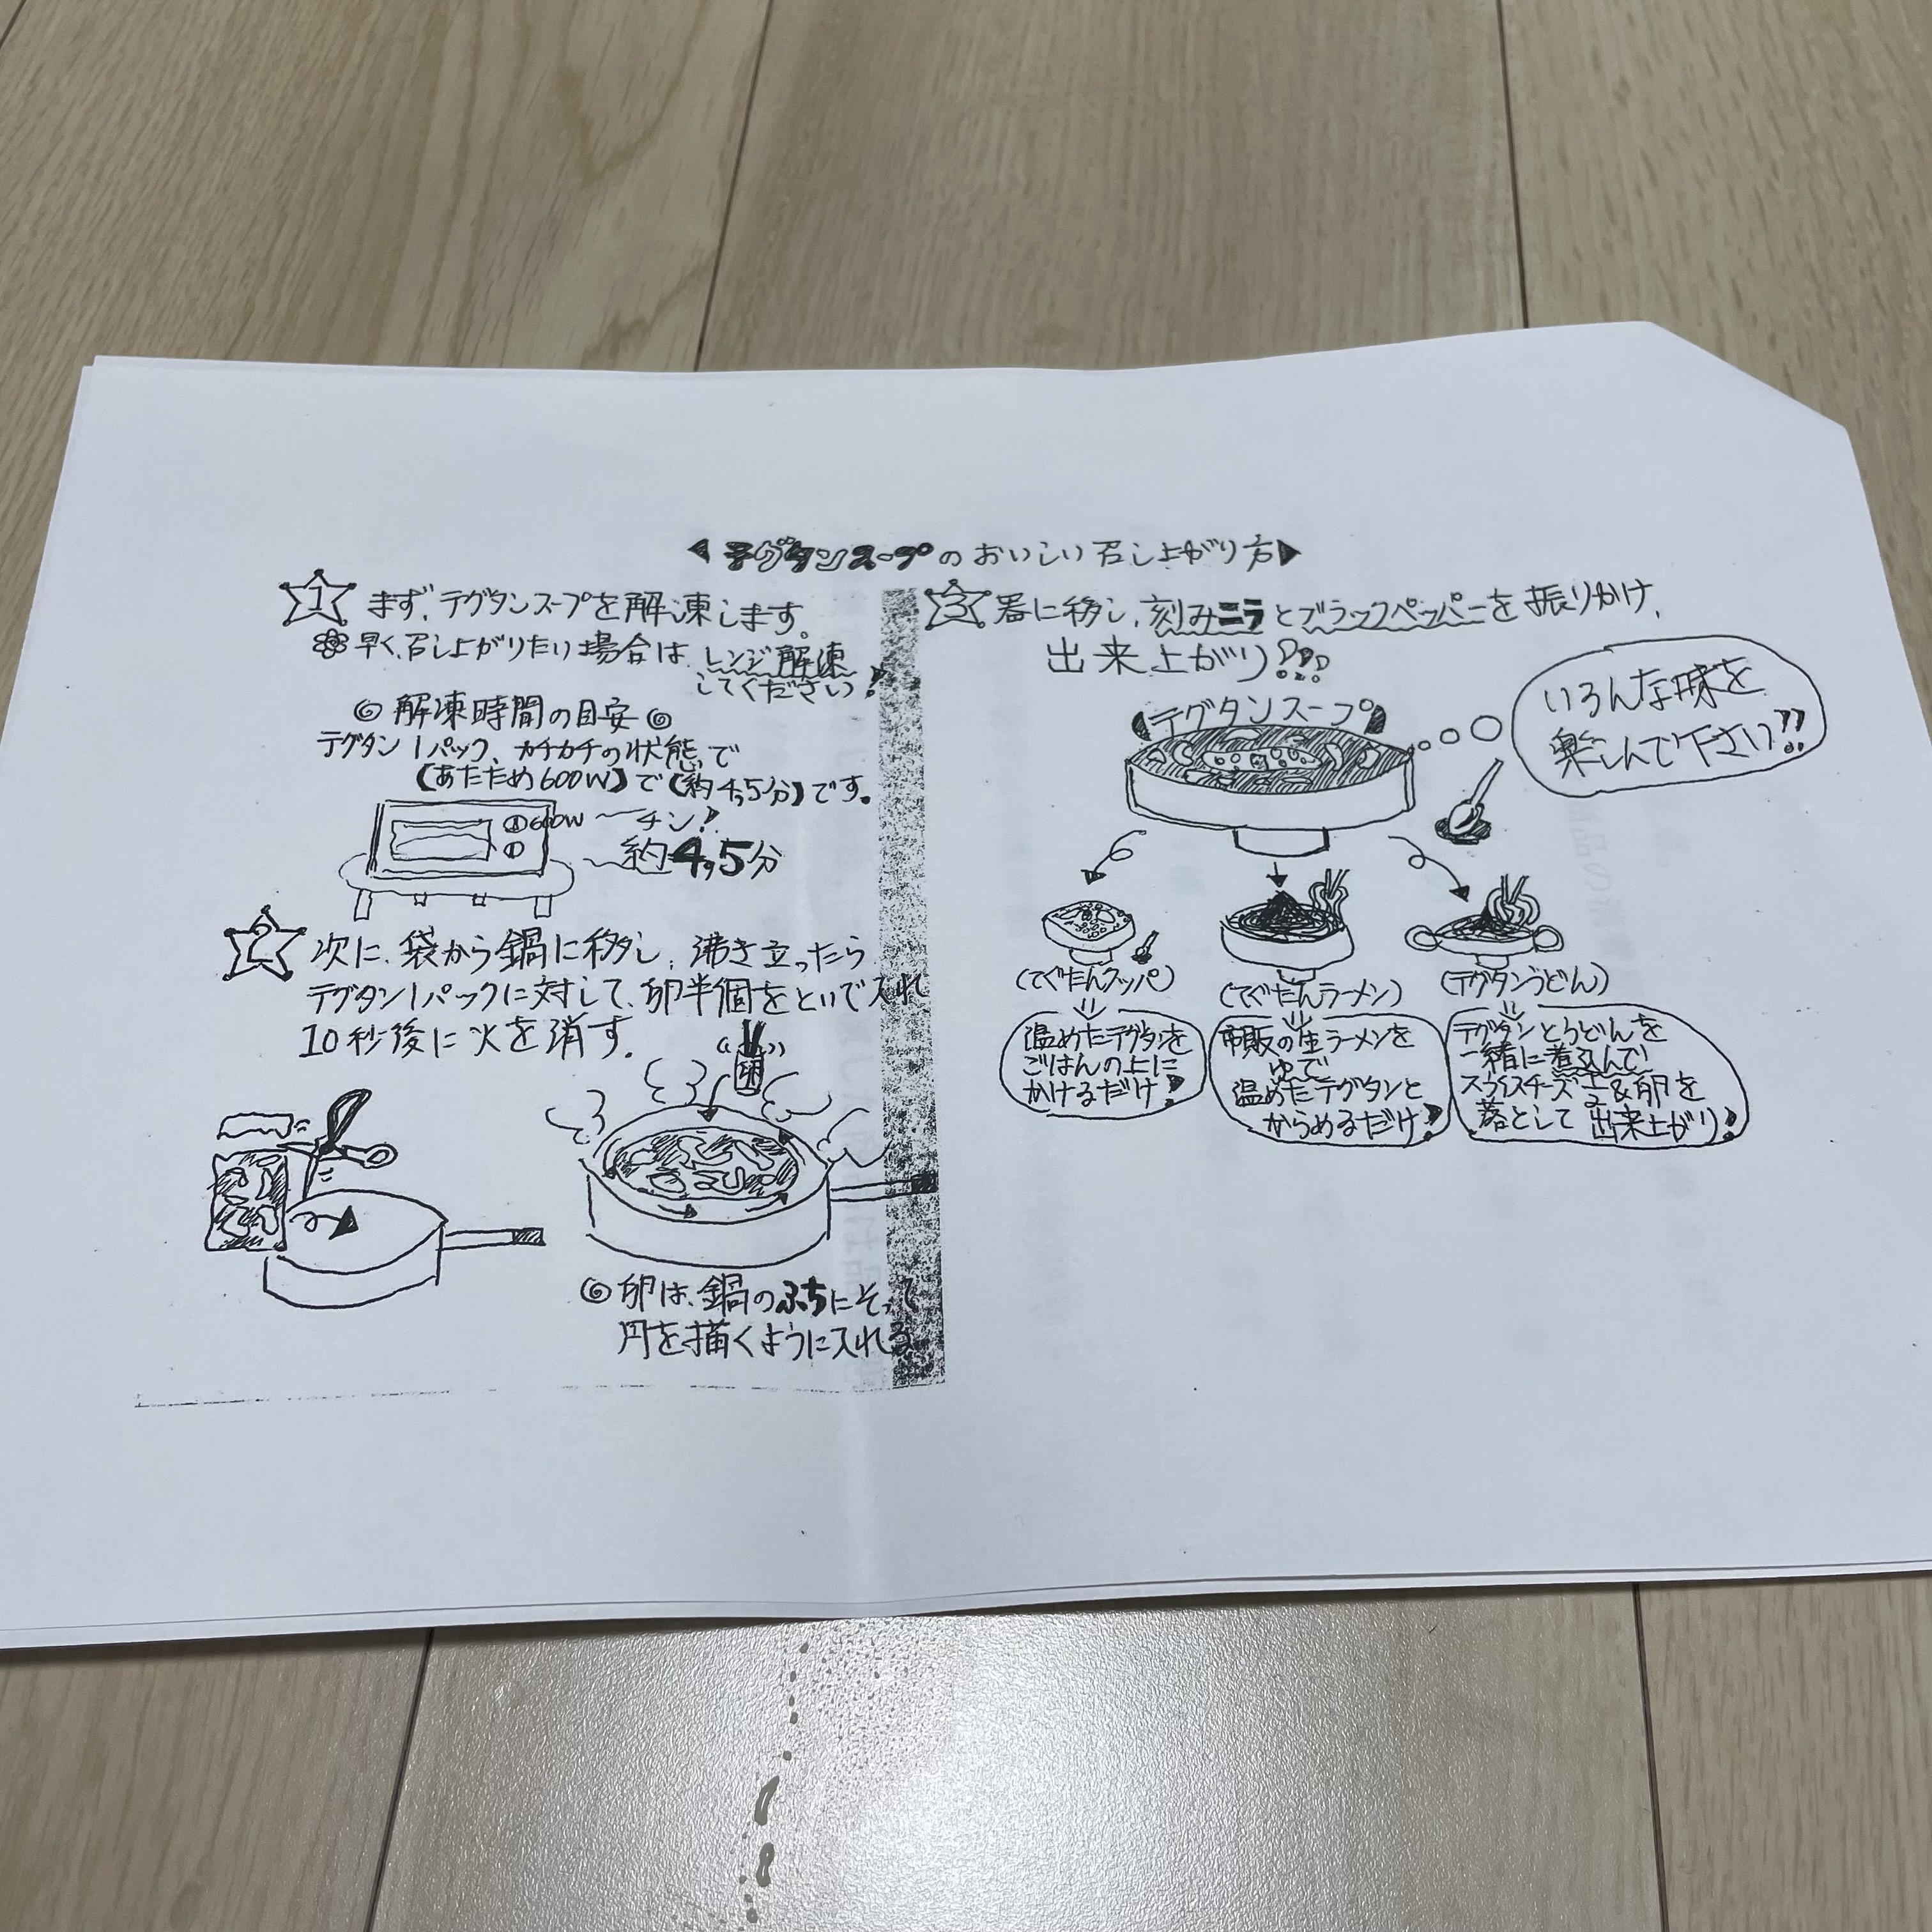 ◀テグタンスープのおいしい召し上がり方▶
1 まず、テグタンスープを解凍します。
早く召し上がりたい場合は、レンジ解凍
してください!
◎解凍時間の目安◎
テグタン1パック、カチカチの状態で
【あたため600W】で【約4,5分】です。
600W 〜チン!
〜約4,5分
2 次に、袋から鍋に移し、沸き立ったら
テグタン1パックに対して、卵半個をといで入れ
10秒後に火を消す。
卵
◎卵は、鍋のふちにそって
円を描くように入れる
3 器に移し、刻みニラとブラックペッパーを振りかけ、
出来上がり!!!
(テグタンスープ)
いろんな味を
楽しんで下さい!!
(てぐたんクッパ)
温めたテグタンを
ごはんの上に
かけるだけ!
(てぐたんラーメン)
市販の生ラーメンを
ゆで
温めたテグタンと
からめるだけ!
(テグタンうどん)
テグタンとうどんを
一緒に煮込んで
スライスチーズ&卵を
落として出来上がり!